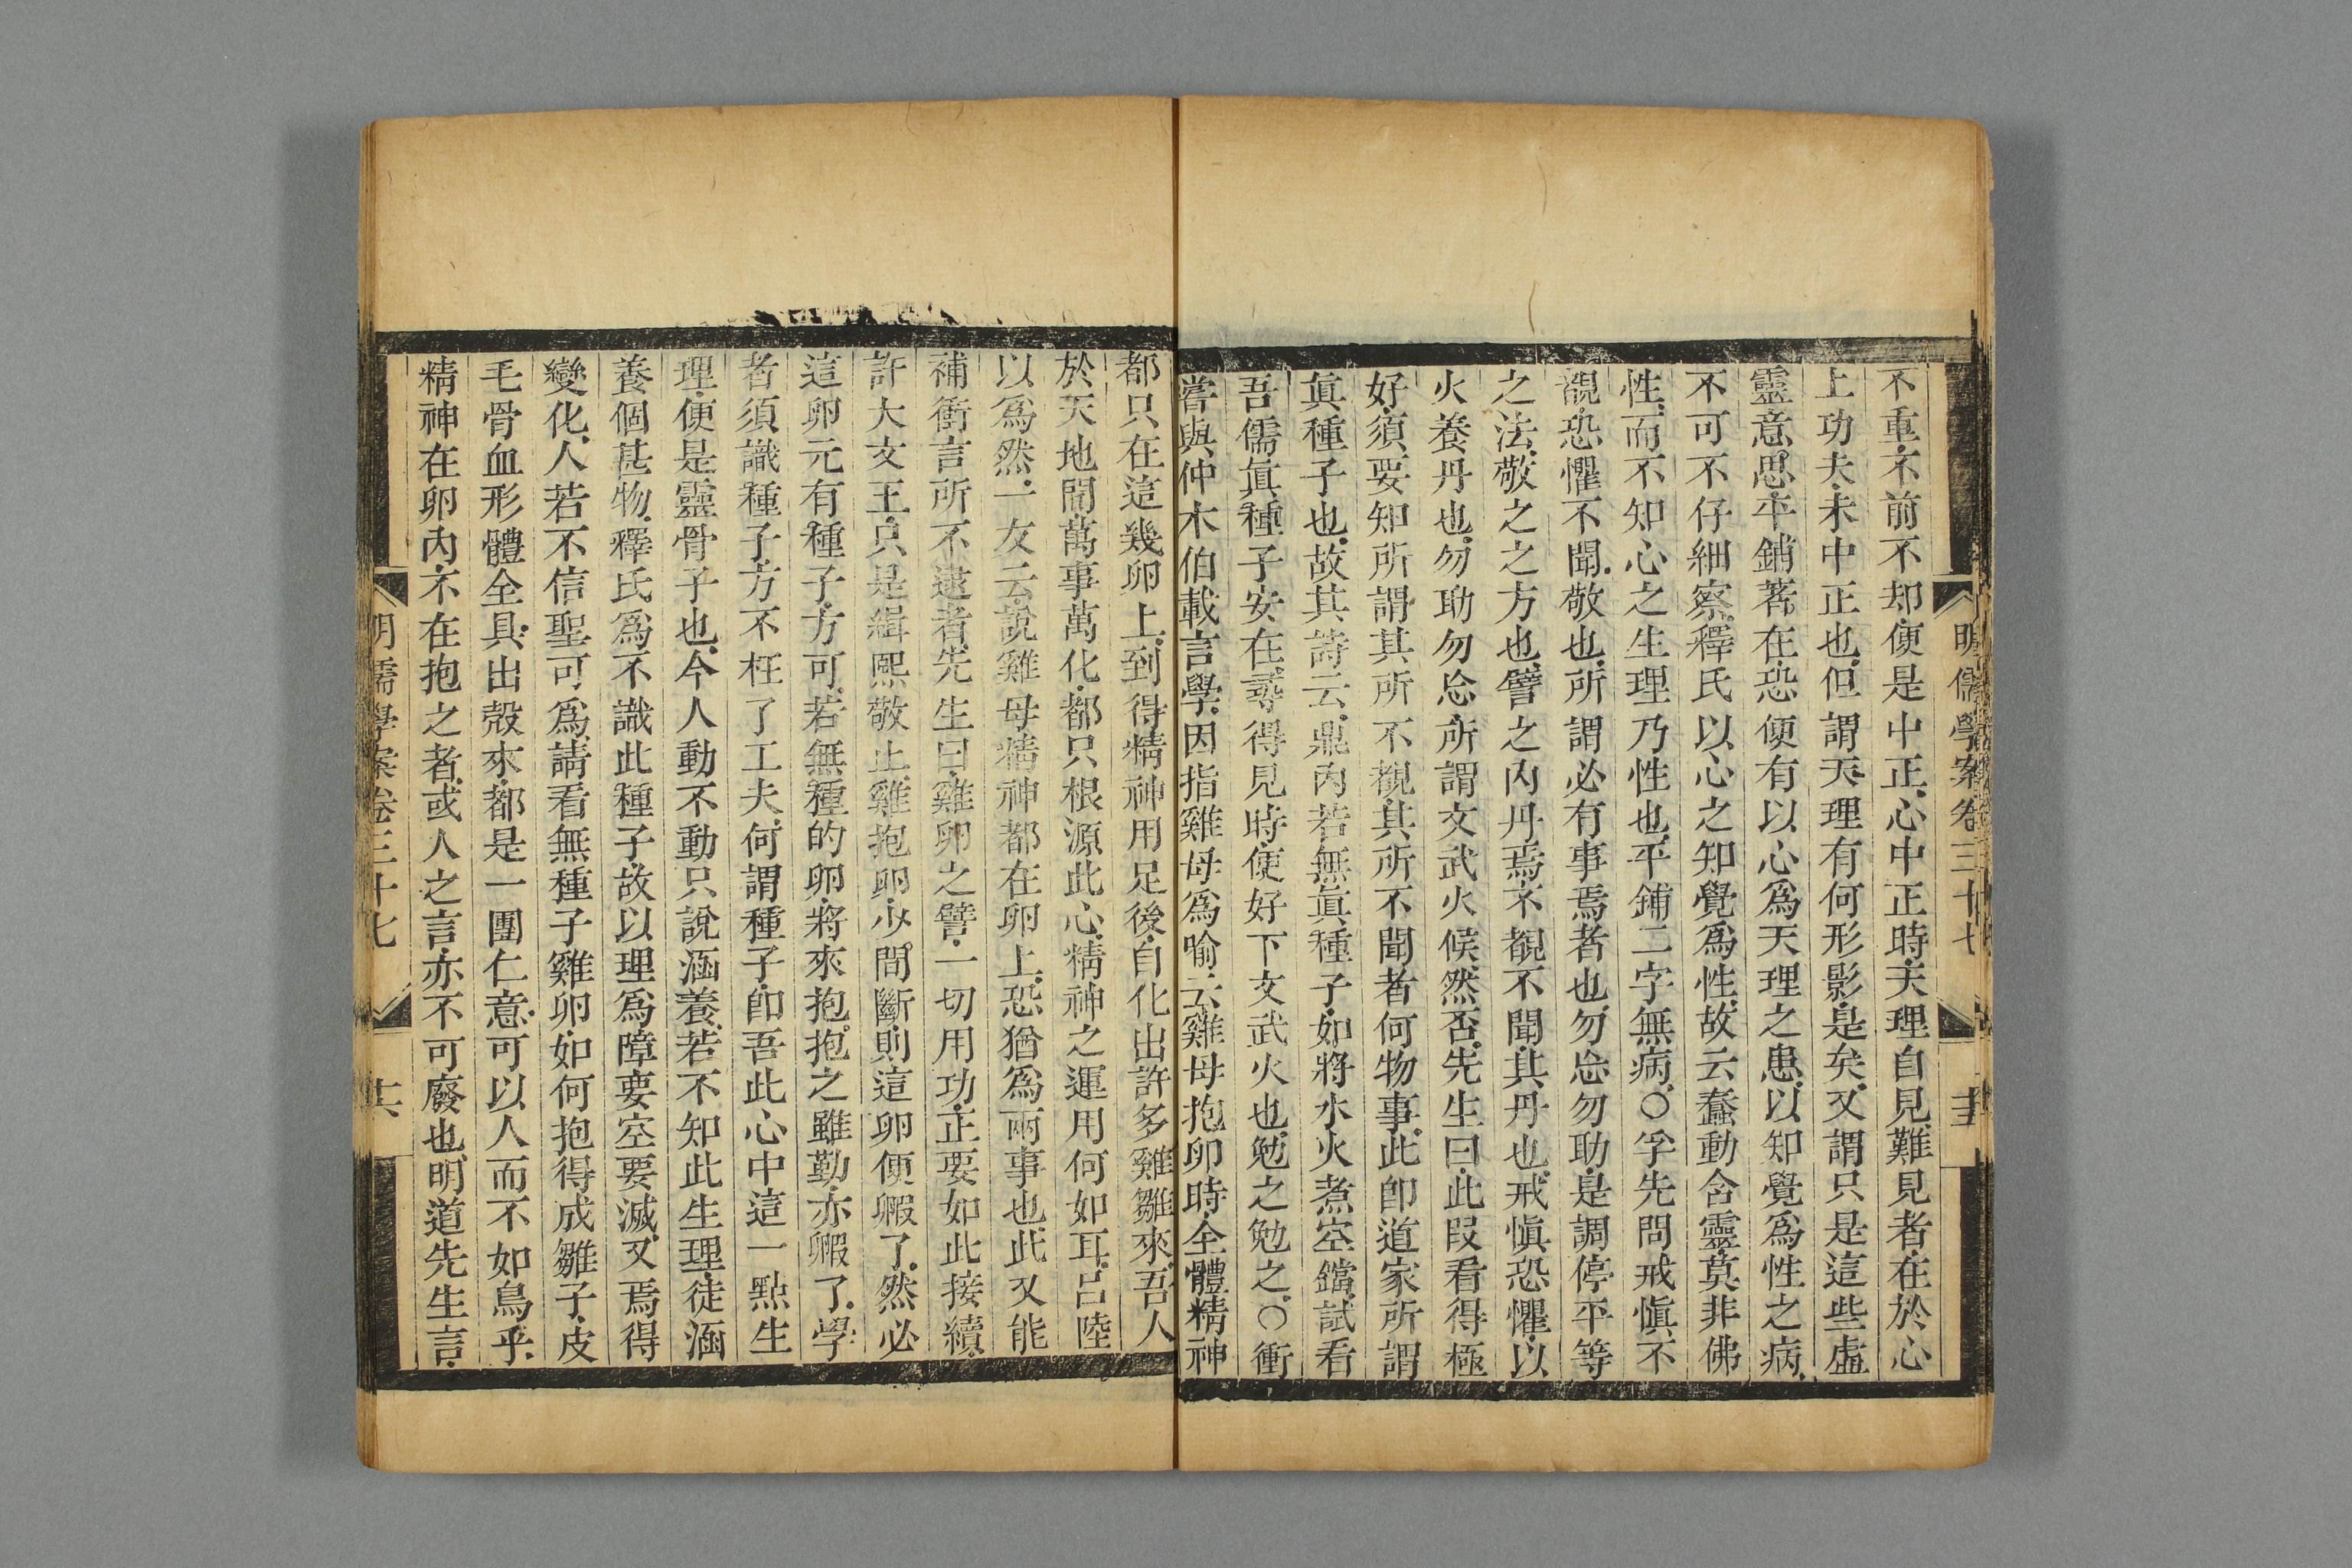 明儒學案卷三十七
不重不前不却便是中正心中正時天理自見難見者在於心
上功夫未中正也但謂天理有何形影是矣又謂只是這些虛
靈意思平鋪著在恐便有以心爲天理之患以知覺爲性之病
不可不仔細察釋氏以心之知覺爲性故云蠢動含靈莫非佛
性而不知心之生理乃性也平鋪二字無病○孚先問戒愼不
覩恐懼不聞敬也所謂必有事焉者也勿忘勿助是調停平等
之法敬之之方也譬之內丹焉不覩不聞其丹也戒愼恐懼以
火養丹也勿助勿忘所謂文武火候然否先生曰此段看得極
好須要知所謂其所不覩其所不聞者何物事此卽道家所謂
眞種子也故其詩云鼎內若無眞種子如將水火煮空鐺試看
吾儒眞種子安在尋得見時便好下文武火也勉之勉之○衝
嘗與仲木伯載言學因指雞母爲喻云雞母抱卵時全體精神
都只在這幾卵上到得精神用足後自化出許多雞雛來吾人
於天地間萬事萬化都只根源此心精神之運用何如耳呂陸
以爲然一友云說雞母精神都在卵上恐猶爲兩事也此又能
補衝言所不逮者先生曰雞卵之譬一切用功正要如此接續
許大文王只是緝熙敬止雞抱卵少間斷則這卵便毈了然必
這卵元有種子方可若無種的卵將來抱抱之雖勤亦毈了學
者須識種子方不枉了工夫何謂種子卽吾此心中這一點生
理便是靈骨子也今人動不動只說涵養若不知此生理徒涵
養個甚物釋氏爲不識此種子故以理爲障要空要滅又焉得
變化人若不信聖可爲請看無種子雞卵如何抱得成雛子皮
毛骨血形體全具出殼來都是一團仁意可以人而不如鳥乎
精神在卵內不在抱之者或人之言亦不可廢也明道先生言
明儒學案卷三十七